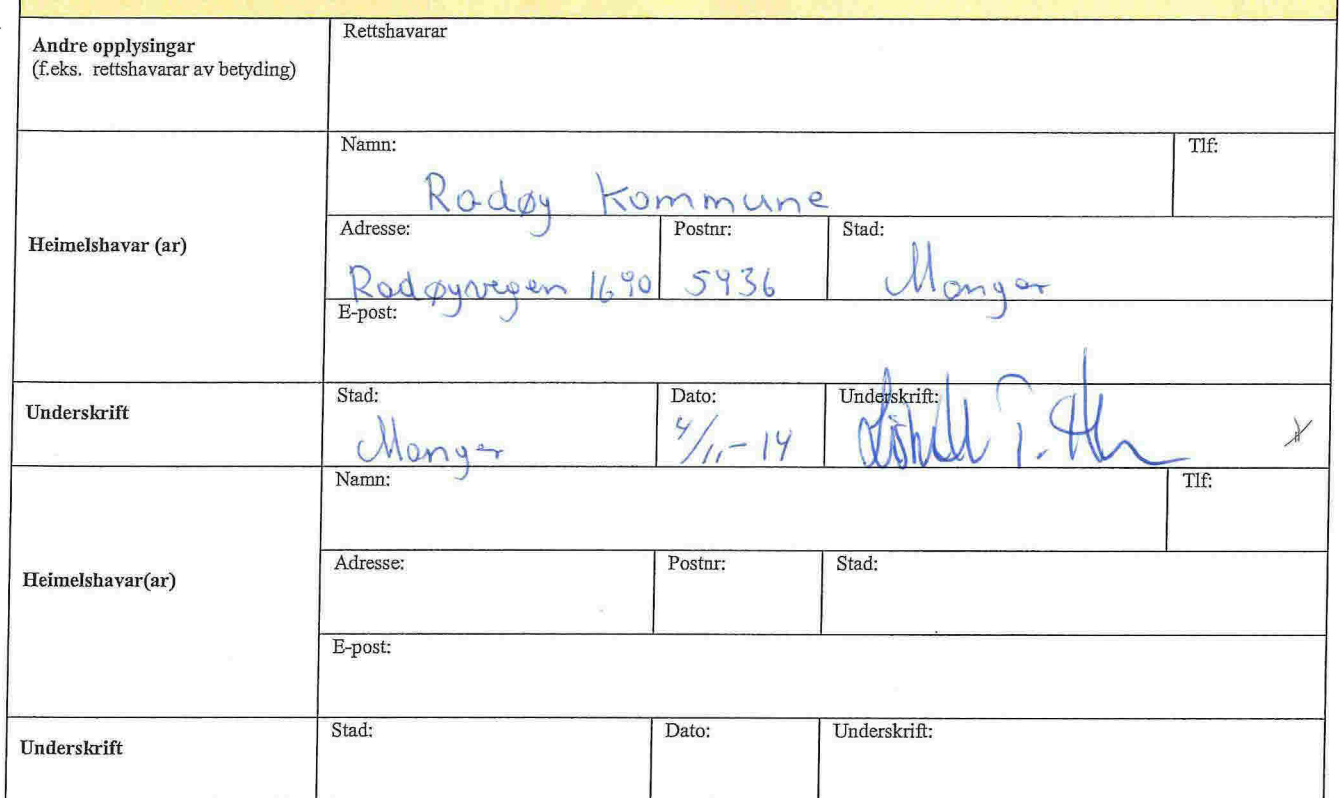 Andre opplysingar
(f.eks. rettshavarar av betyding)
Rettshavarar
Heimelshavar (ar)
Namn:
Radøy Kommune
Tlf:
Adresse:
Radøyvegen 1690
Postnr:
5936
Stad:
Manger
E-post:
Underskrift
Stad:
Manger
Dato:
4/11-14
Underskrift:
Heimelshavar(ar)
Namn:
Tlf:
Adresse:
Postnr:
Stad:
E-post:
Underskrift
Stad:
Dato:
Underskrift: